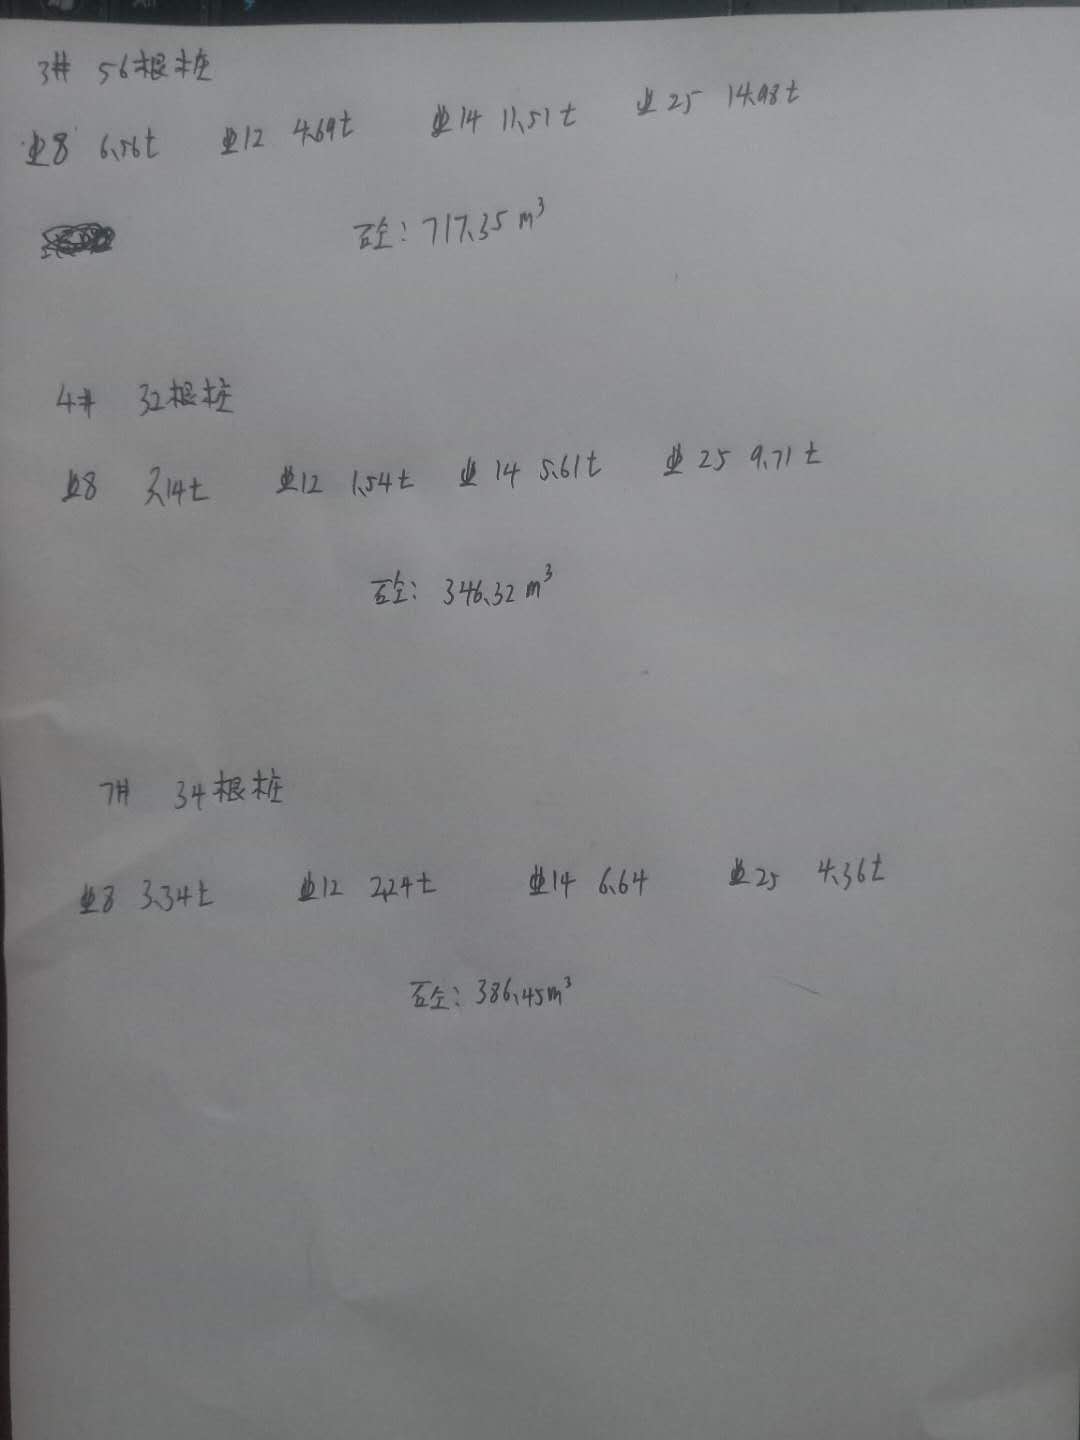 3# 56根桩
⌀8 6.56t ⌀12 4.69t ⌀14 11.51t ⌀25 14.98t
砼: 717.35 m³
4# 32根桩
⌀8 3.14t ⌀12 1.54t ⌀14 5.61t ⌀25 9.71t
砼: 346.32 m³
7# 34根桩
⌀8 3.34t ⌀12 2.24t ⌀14 6.64 ⌀25 4.36t
砼: 386.45m³